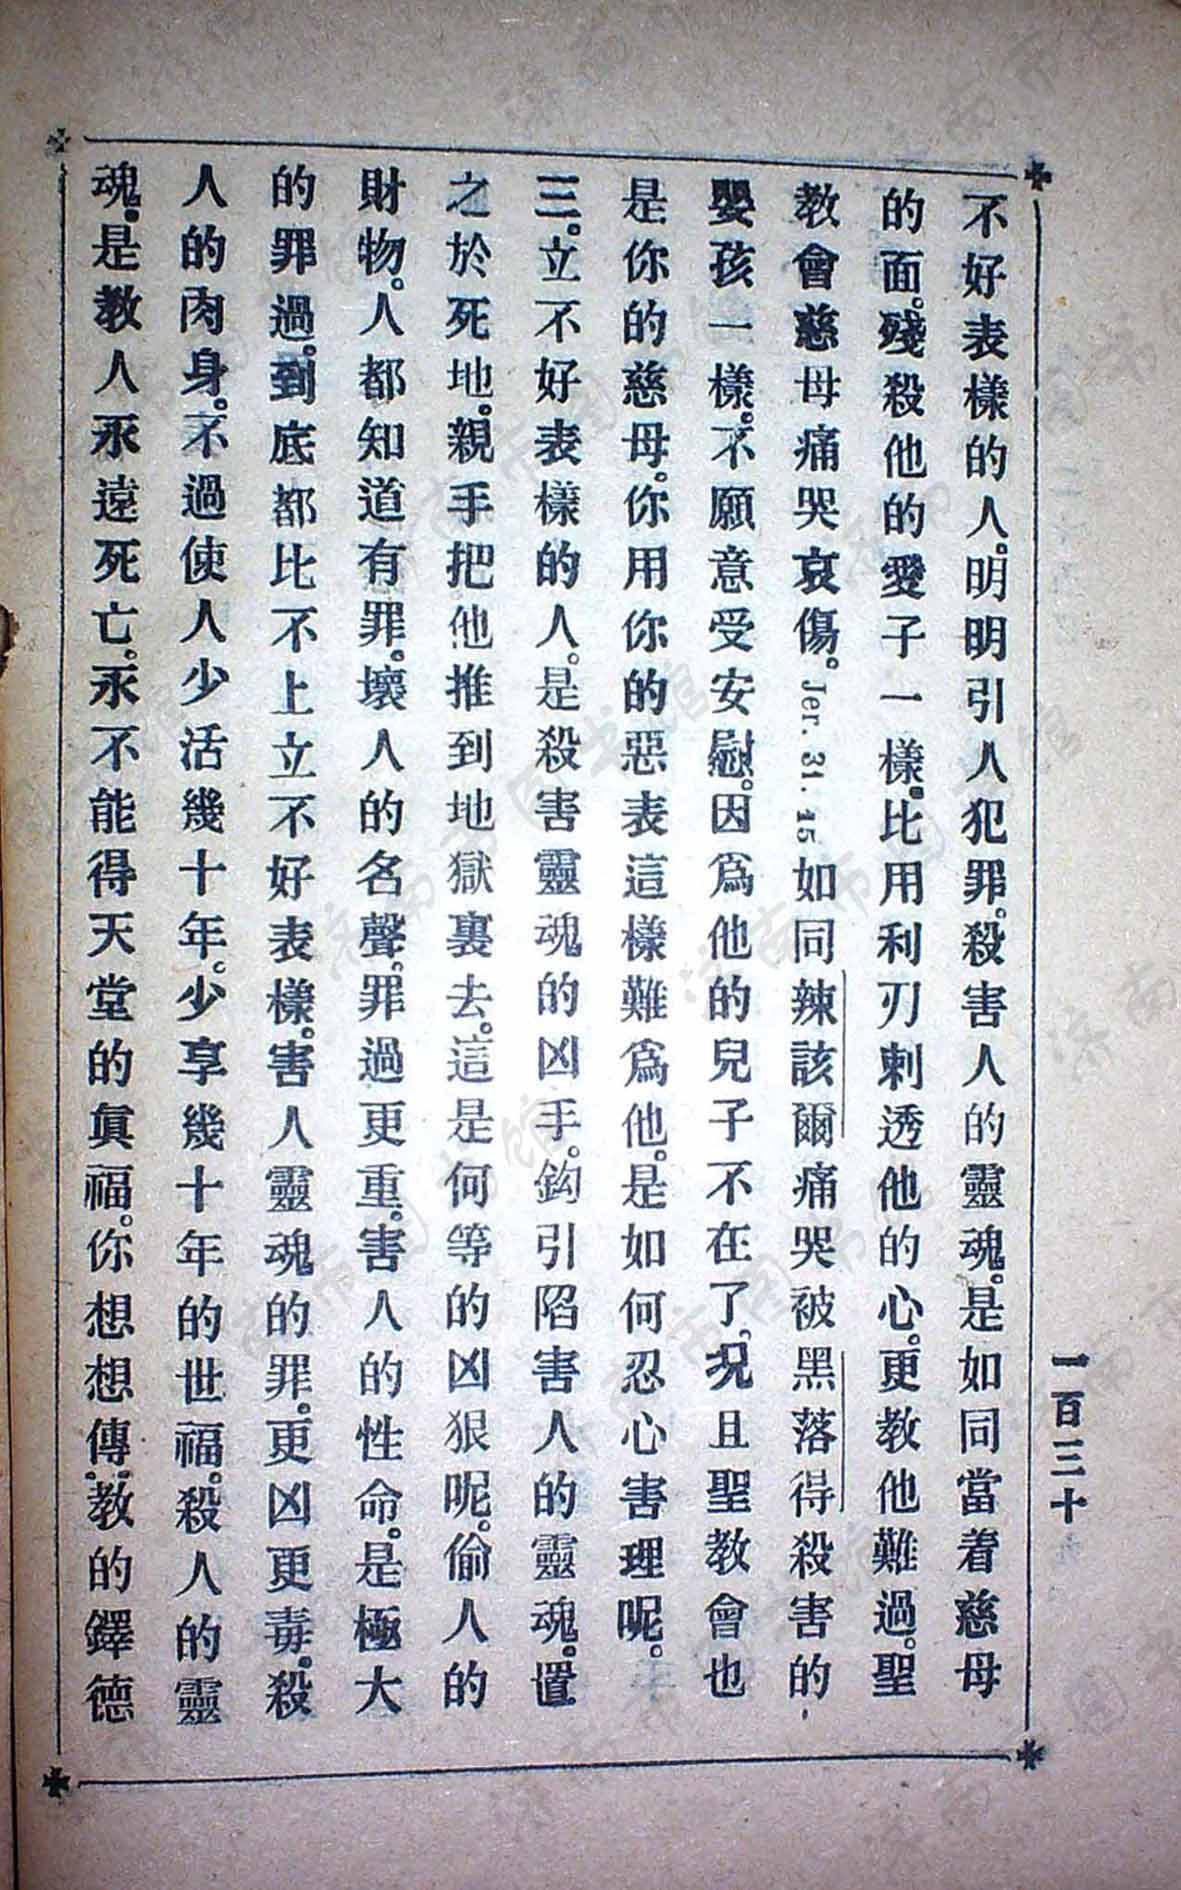 不好表樣的人。明明引人犯罪。殺害人的靈魂。是如同當着慈母
的面。殘殺他的愛子一樣。比用利刃刺透他的心。更教他難過。聖
教會慈母痛哭哀傷。Jer. 31. 15如同辣該爾痛哭被黑落得殺害的
嬰孩一樣。不願意受安慰。因爲他的兒子不在了。况且聖教會也
是你的慈母。你用你的惡表這樣難爲他。是如何忍心害理呢。
三。立不好表樣的人。是殺害靈魂的凶手。鈎引陷害人的靈魂。置
之於死地。親手把他推到地獄裏去。這是何等的凶狠呢。偷人的
財物。人都知道有罪。壞人的名聲。罪過更重。害人的性命。是極大
的罪過。到底都比不上立不好表樣。害人靈魂的罪。更凶更毒。殺
人的肉身。不過使人少活幾十年。少享幾十年的世福。殺人的靈
魂。是教人永遠死亡。永不能得天堂的眞福。你想想傳教的鐸德
一百三十
濟南市圖書館